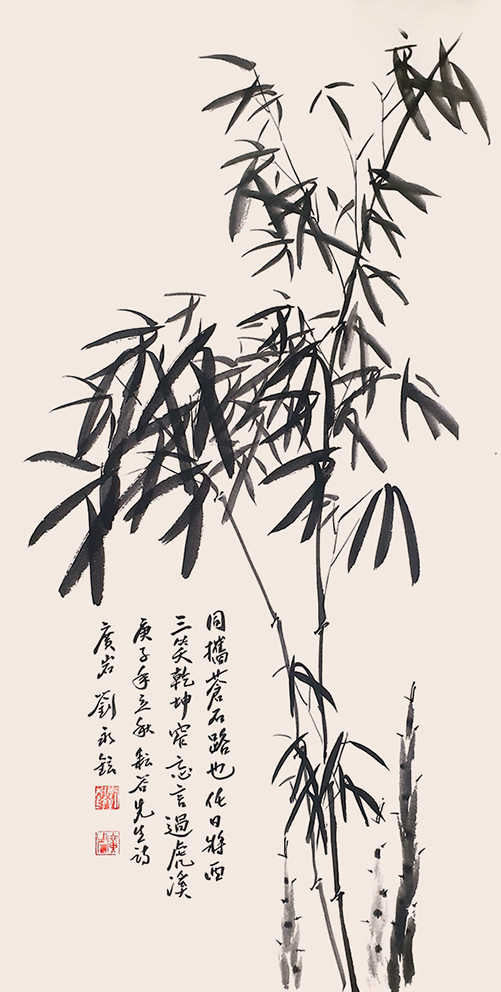 同攜蒼石路也任日將西
三笑乾坤窄忘言過虎溪
庚子年立秋耘谷先生詩
廣岩劉永鉉